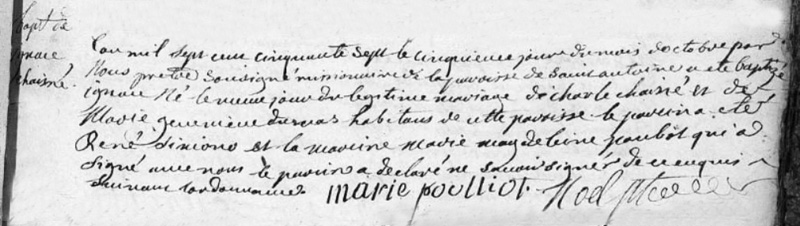 Bapt de
ignace
chaisné.
Lan mil sept cent cinquante sept le cinquieme jour du mois doctobre par
Nous pretre soussigné missionaire de la paroisse de saint antoine a été baptisé
ignace Né le meme jour du legitime mariage de charle chainé et de
Marie genevieve dumas habitans de cette paroisse le parein a eté
René Simono et la mareine marie magdeleine poulliot qui a
signé avec nous le parein a declaré ne savoir signer de ce enquis
suivant lordonnance marie poulliot. Noel ptre